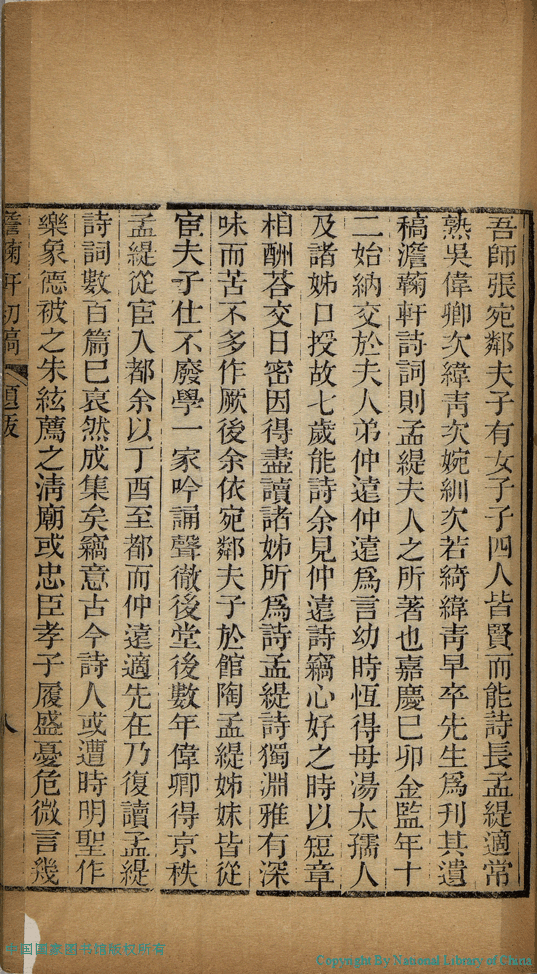 吾師張宛鄰夫子有女子子四人皆賢而能詩長孟緹適常
熟吳偉卿次緯青次婉紃次若綺緯青早卒先生爲刊其遺
稿澹蘜軒詩詞則孟緹夫人之所著也嘉慶己卯金監年十
二始納交於夫人弟仲遠仲遠爲言幼時恆得母湯太孺人
及諸姊口授故七歲能詩余見仲遠詩竊心好之時以短章
相酬荅交日密因得盡讀諸姊所爲詩孟緹詩獨淵雅有深
味而苦不多作厥後余依宛鄰夫子於館陶孟緹姊妹皆從
宦夫子仕不廢學一家吟誦聲徹後堂後數年偉卿得京秩
孟緹從宦入都余以丁酉至都而仲遠適先在乃復讀孟緹
詩詞數百篇巳裒然成集矣竊意古今詩人或遭時明聖作
樂象德被之朱絃薦之淸廟或忠臣孝子履盛憂危微言幾
澹蘜軒初稿 題跋 八
中国国家图书馆版权所有
Copyright By National Library of China